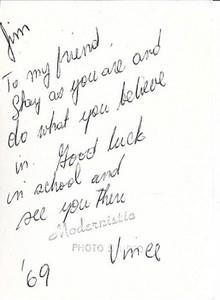 Jim
To my friend,
Stay as you are and
do what you believe
in. Good luck
in school and
see you then
Modernistic
PHOTO
Vince
'69